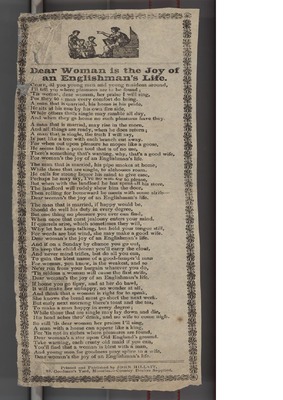 Dear Woman is the Joy of
an Englishman's Life.
all you young men and young maidens around,
I'll tell you where pleasures are to be found;
'Tis woman, dear woman, her praise I will sing,
For they to man every comfort do bring.
A man that is married, his home is his pride,
He sits at his ease by his own fire side,
While others that's single may ramble all day,
And when they go home no such pleasures have they.
A man that is married, may rise in the morn
And all things are ready, when he does return;
A man that is single, the truth I will say,
Is just like a tree with each branch cut away.
For when out upon pleasure he mopes like a goose,
He seems like a poor tool that is of no use,
There's something that's wanting, why, that's a good wife,
For woman's the joy of an Englishman's life.
The man that is married, his pipe smokes at home,
While those that are single, to alehouses roam.
He calls for many liquor his mind to give ease,
Perhaps he may say, I've no wife to please,
But when with the landlord he has spent all his store,
The landlord will quickly show him the door,
Then rolling for homeward he meets with some
Dear woman's the joy of an Englishman's life.
The man that is married, if happy would be
Should do well his duty in every degree,
the one thing no pleasure you ever can find,
When once that cruel jealousy enters your mind.
If quarrels arise, which sometimes they will,
Why let her keep talking, but hold your tongue still,
For words are but wind, she may make a good wife,
Dear woman's the joy of an Englishman's life.
And if on a Sunday by chance you go out,
To keep the child you'll carry the clout,
And never mind trifles, but do all you can,
To gain the blest name of a good-temper'd man
For woman, you know, is the weakest, and so
Ne'er run from your bargain wherever you do,
'Tis seldom a woman will cause the first strife,
Dear woman's the joy of an Englishman's life.
If home you go tipsy, and at her do bawl,
It will make her unhappy, no wonder at all,
And think that a woman is right for to speak,
She knows the bread must go short the next week.
But early next morning there's toast and the tea,
To make a man happy in every degree;
While those that are single may lay down and die,
His head aches thro' drink, and no wife to come nigh.
So still 'tis dear woman her praises I'll sing,
A man with a home can appear like a king,
For 'tis not in riches where pleasures are found,
Dear woman's a star upon Old England's ground.
Take warning, each crusty old maid if you can,
You'll find that a woman is blest with a man,
And young men for goodness pray splice to a wife,
Dear woman's the joy of an Englishman's life.
Printed and Published by JOHN